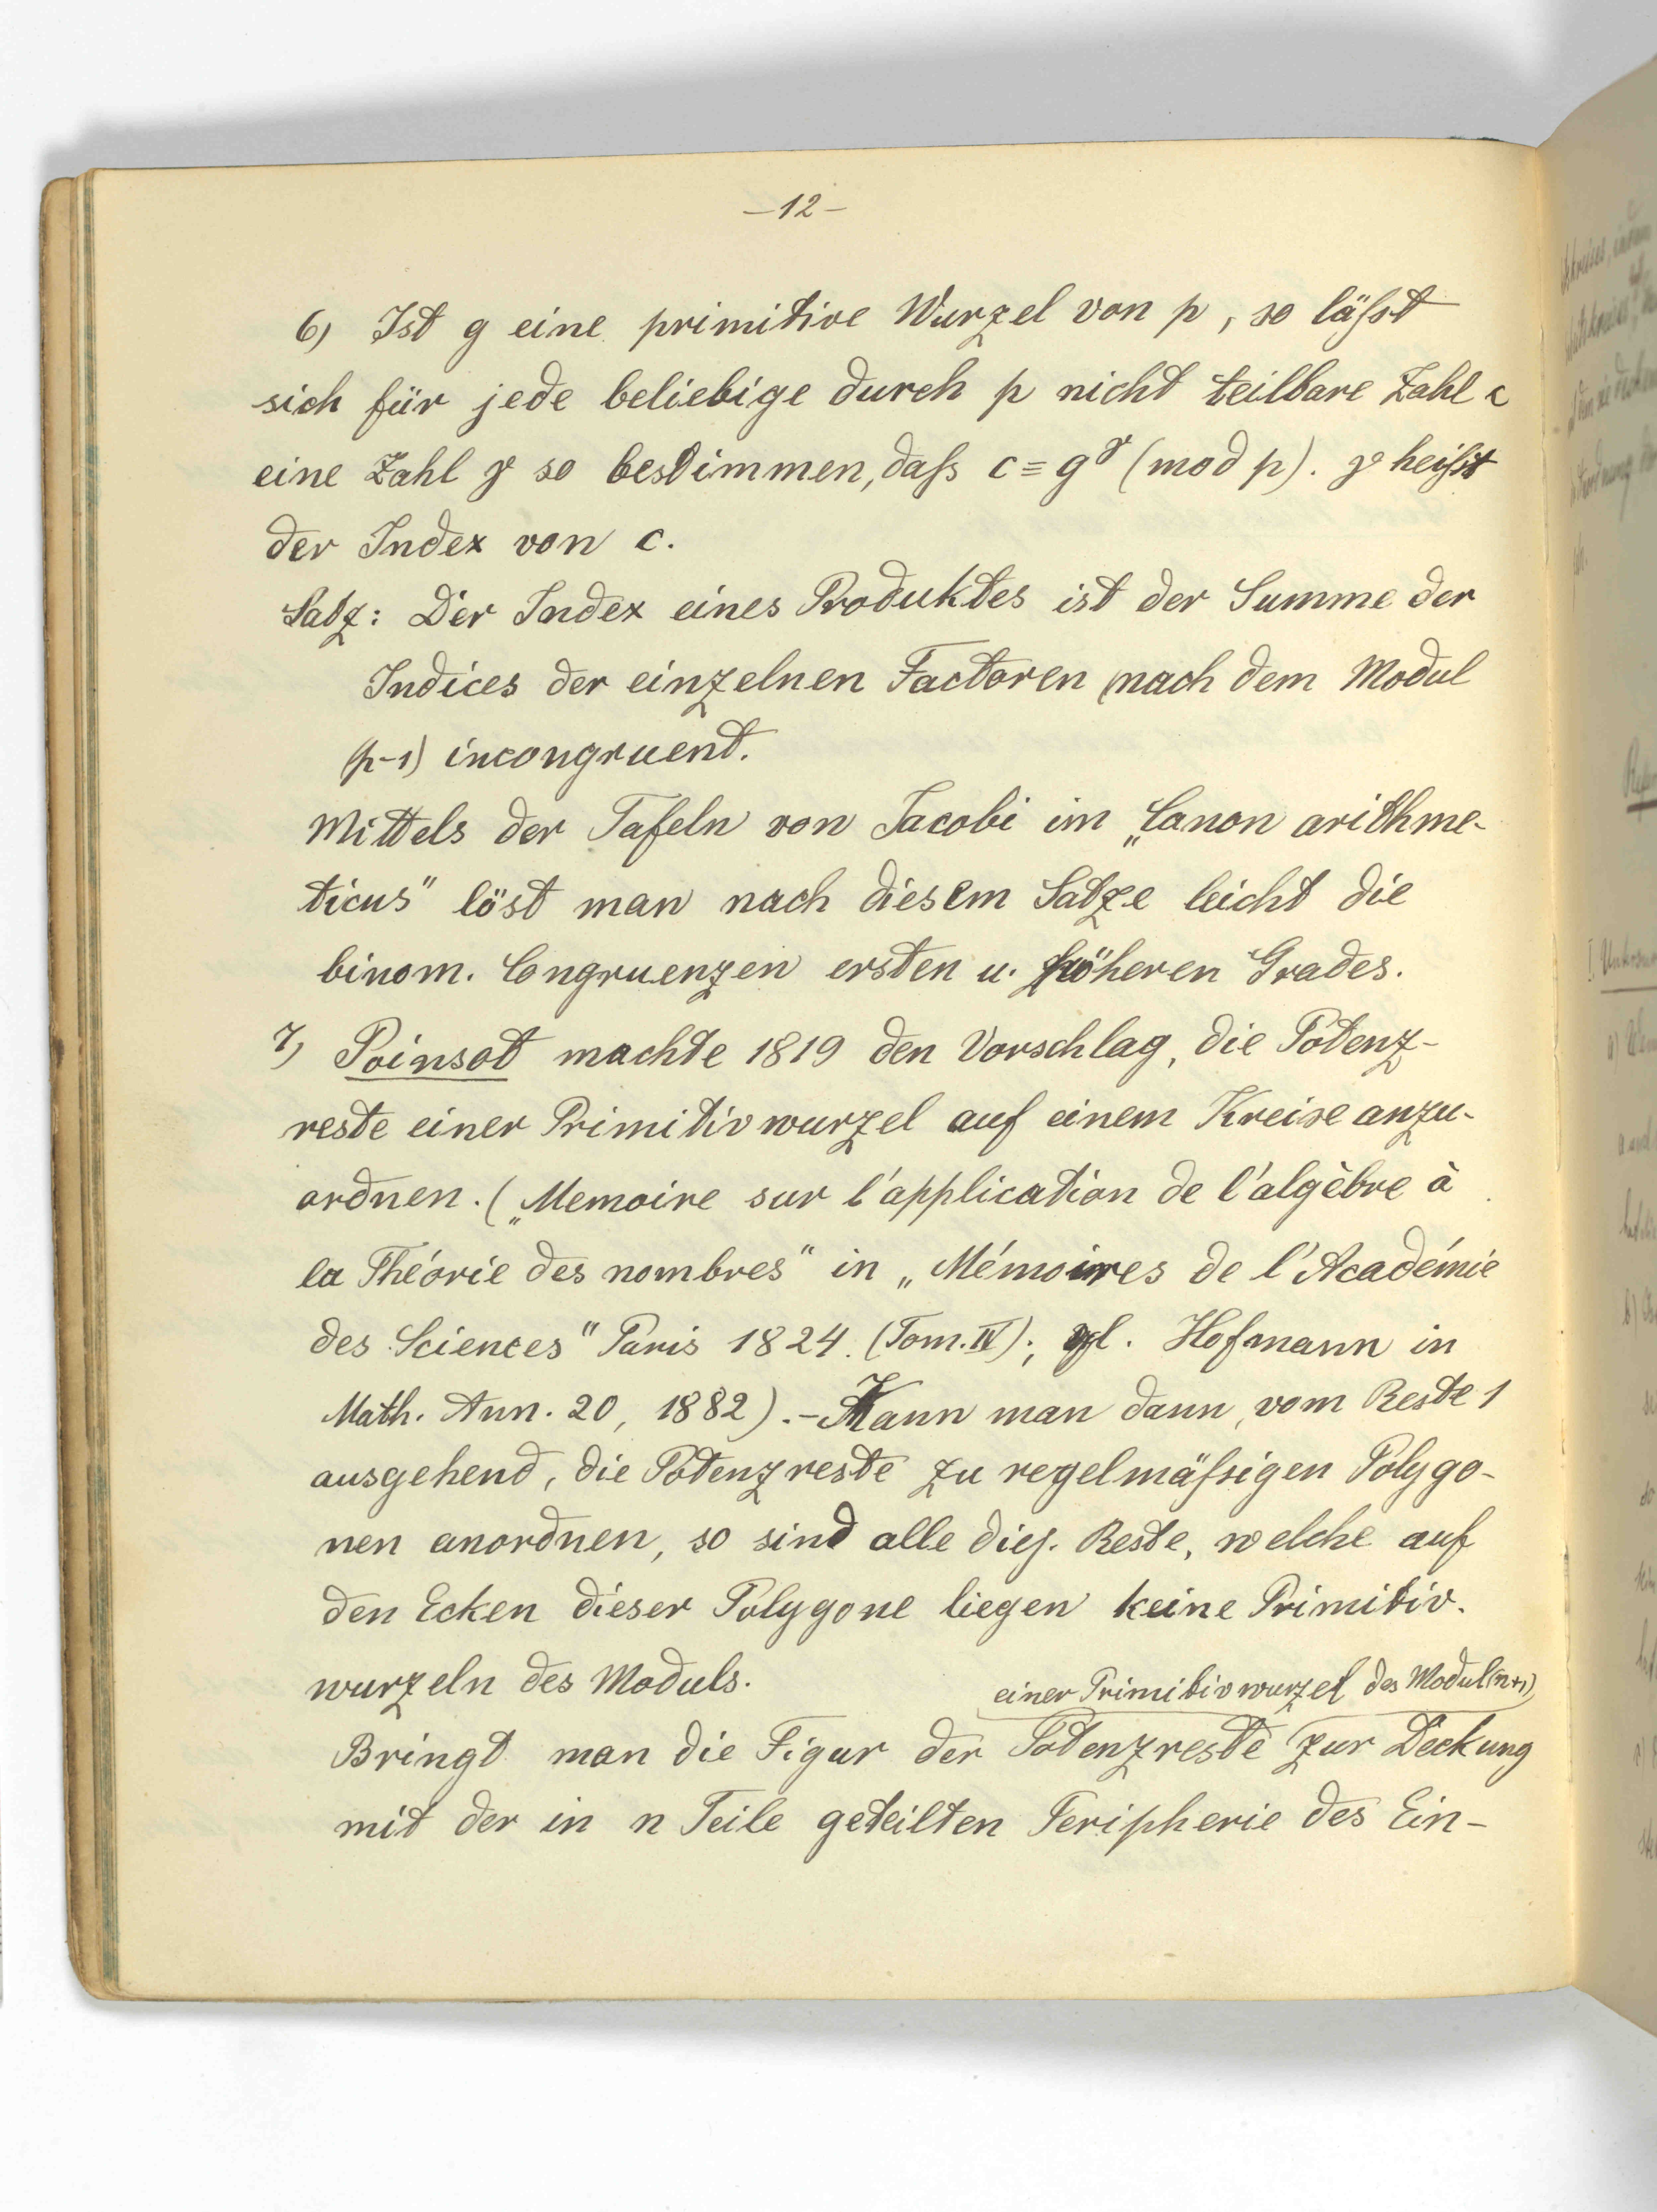 –12–
6) Ist g eine primitive Wurzel von p, so läßt
sich für jede beliebige durch p nicht teilbare Zahl c
eine Zahl γ so bestimmen, daß c ≡ g^γ (mod p). γ heißt
der Index von c.
Satz: Der Index eines Produktes ist der Summe der
Indices der einzelnen Factoren (nach dem Modul
(p-1) incongruent.
Mittels der Tafeln von Jacobi im „Canon arithme-
ticus" löst man nach diesem Satze leicht die
binom. Congruenzen ersten u. höheren Grades.
7) Poinsot machte 1819 den Vorschlag, die Potenz-
reste einer Primitivwurzel auf einem Kreise anzu-
ordnen. („Memoire sur l'application de l'algèbre à
la Théorie des nombres" in „Mémoires de l'Académie
des Sciences" Paris 1824. (Tom. IV); vgl. Hofmann in
Math. Ann. 20, 1882). – Kann man dann, vom Reste 1
ausgehend, die Potenzreste zu regelmäßigen Polygo-
nen anordnen, so sind alle diej. Reste, welche auf
den Ecken dieser Polygone liegen keine Primitiv-
wurzeln des Moduls.
einer Primitivwurzel des Modul (n+1)
Bringt man die Figur der Potenzreste zur Deckung
mit der in n Teile geteilten Peripherie des Ein-